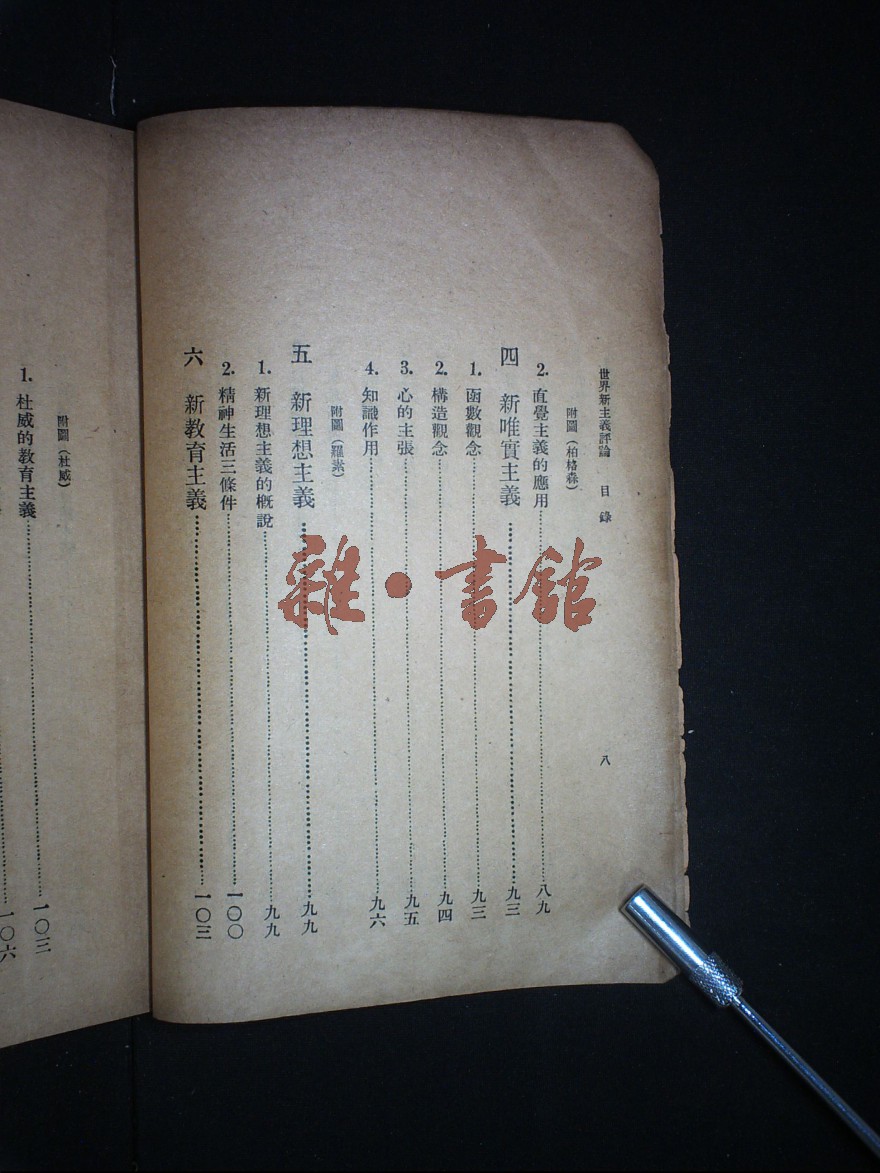 世界新主義評論　目錄　八
2. 直覺主義的應用……八九
附圖（柏格森）
四　新唯實主義……九三
1. 函數觀念……九三
2. 構造觀念……九四
3. 心的主張……九五
4. 知識作用……九六
附圖（羅素）
五　新理想主義……九九
1. 新理想主義的概說……九九
2. 精神生活三條件……一〇〇
六　新教育主義……一〇三
附圖（杜威）
1. 杜威的教育主義……一〇三
一〇六
雜·書館